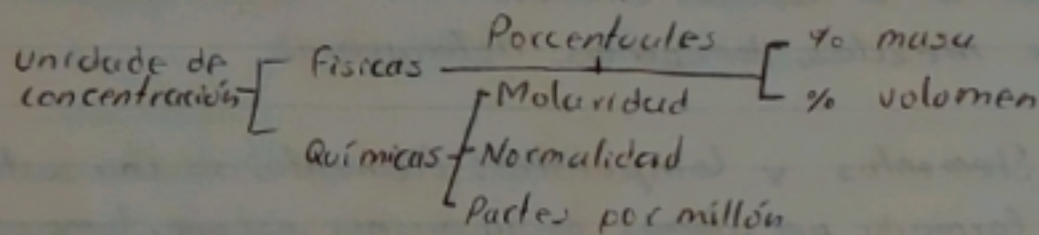 Unidade de concentración
Físicas
Porcentuales
% masa
% volomen
Químicas
Molaridad
Normalidad
Partes por millón